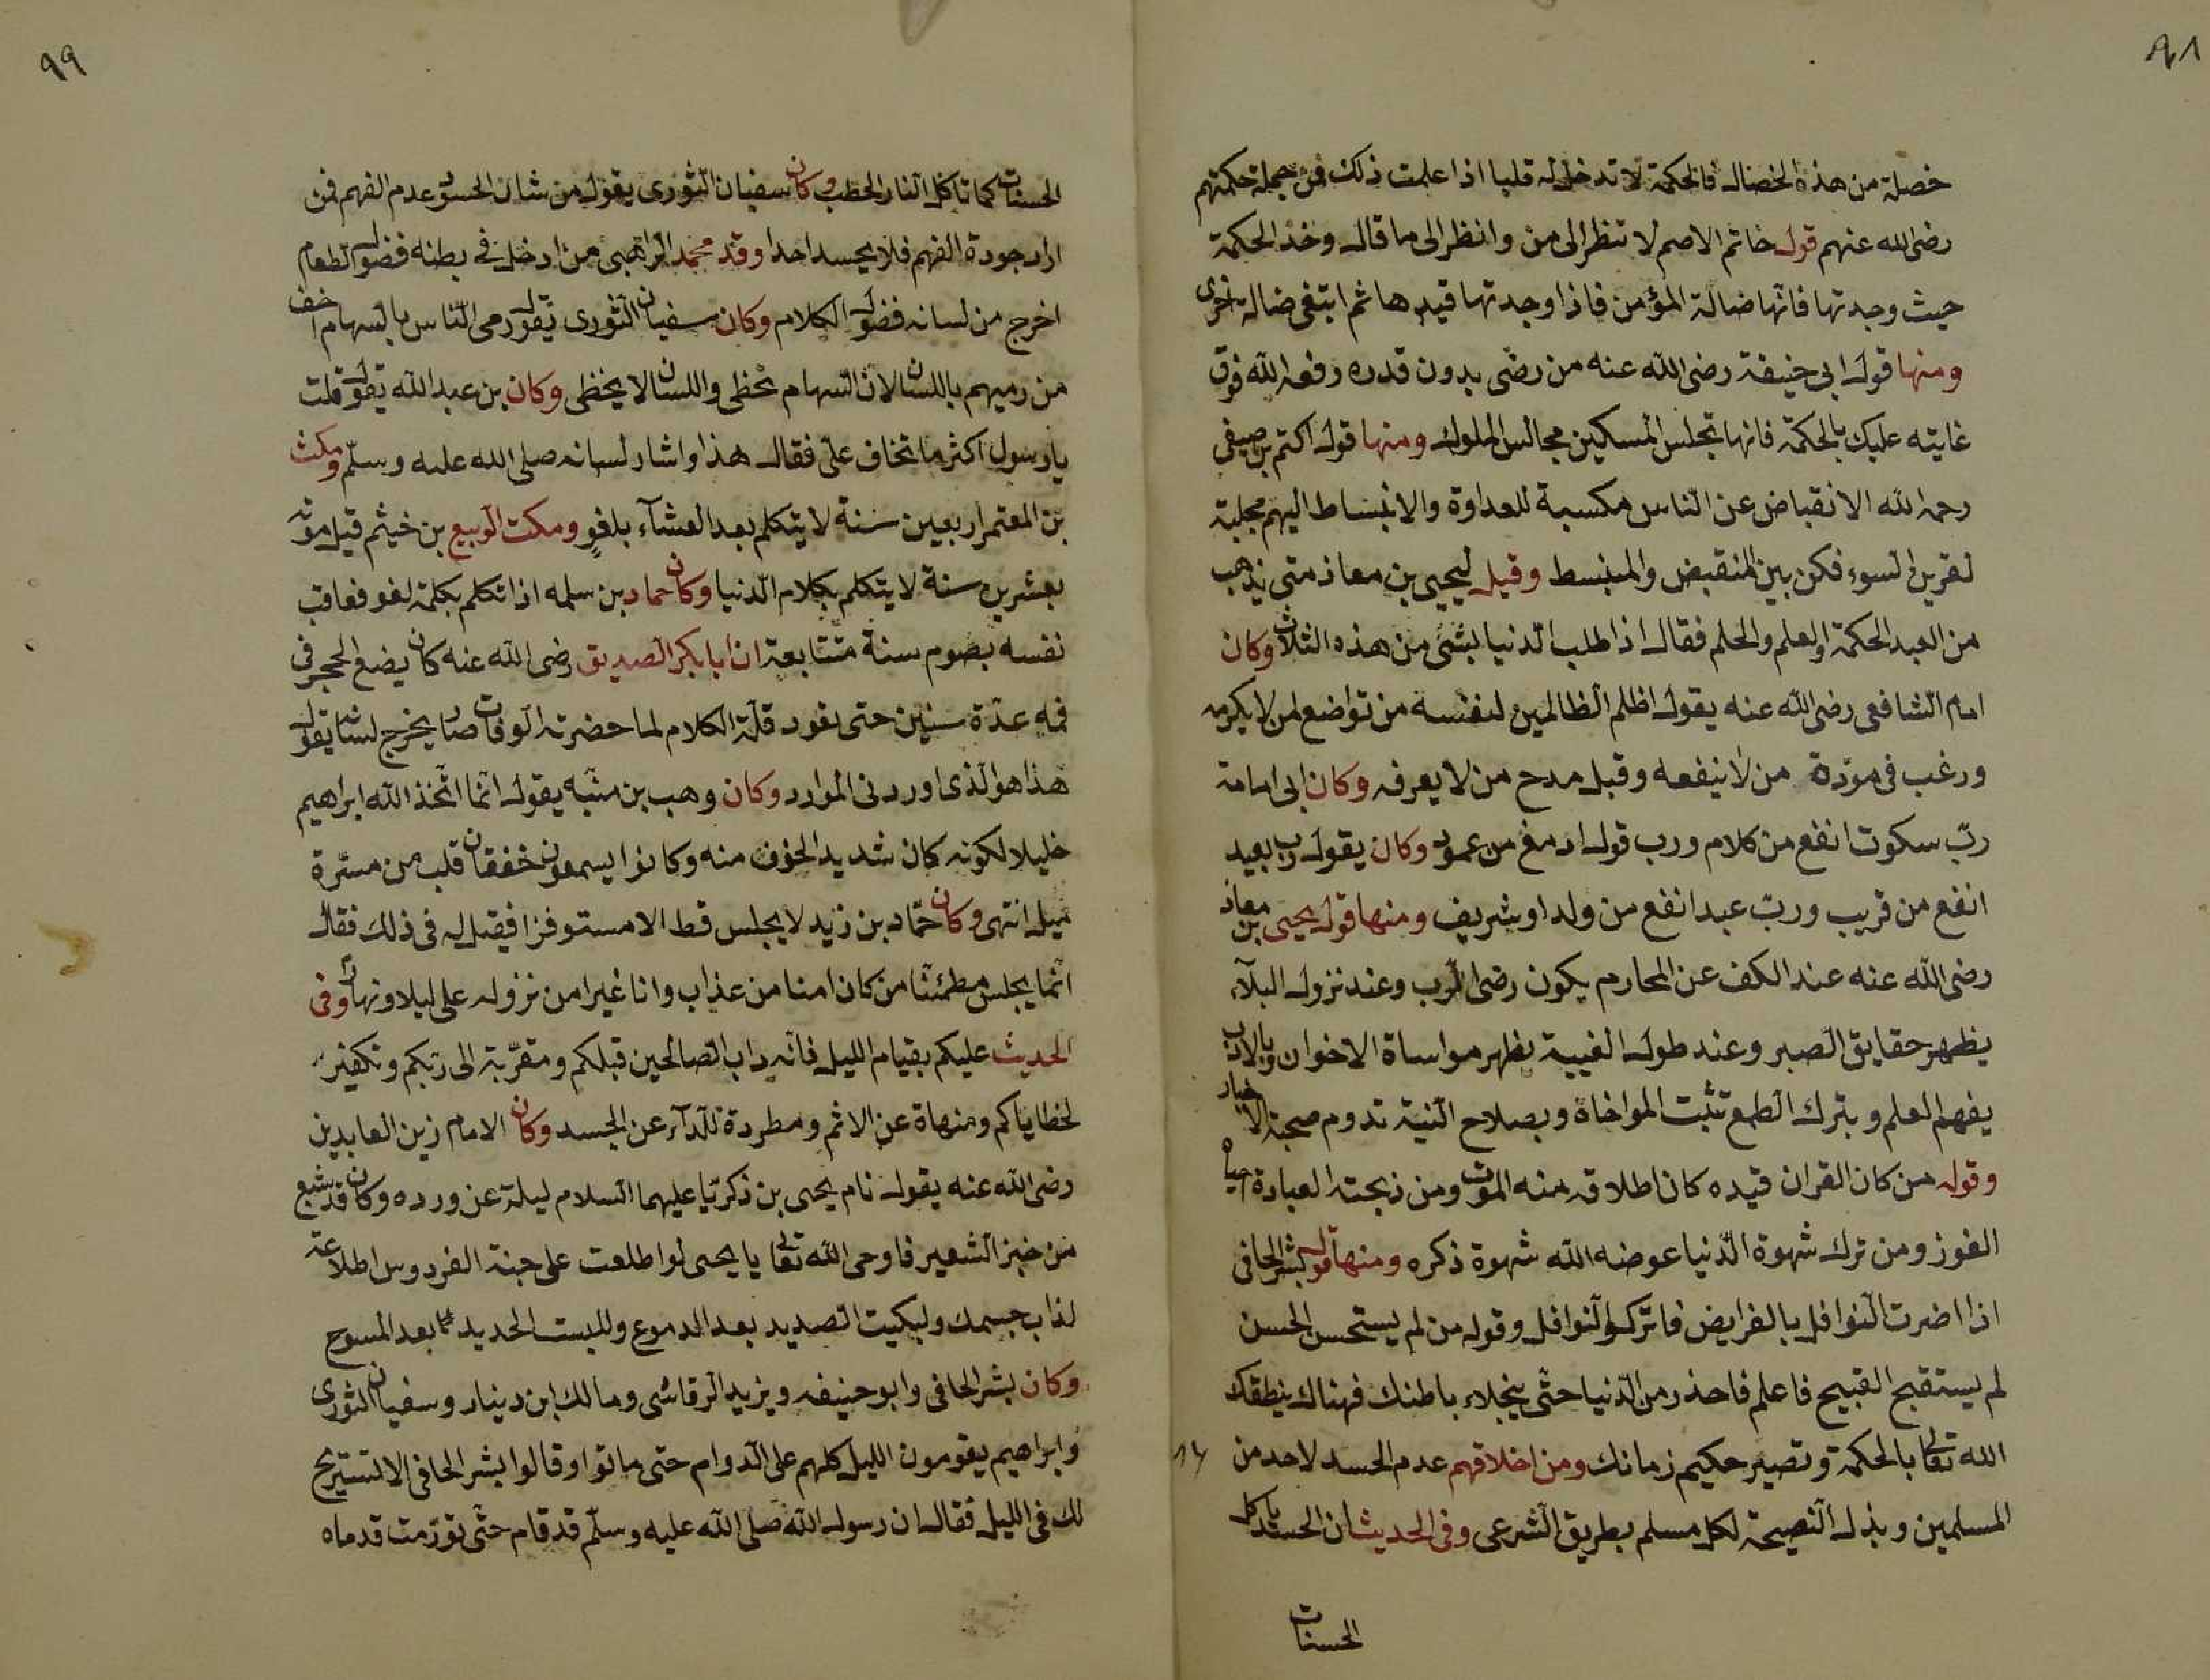 ٩٨
خصلة من هذه الخصال فالحكمة لا تدخل له قلبا اذا علمت ذلك فمن جملة حكمتهم
رضى الله عنهم قول خاتم الاصم لا تنظر الى من وانظر الى ما قال وخذ الحكمة
حيث وجدتها فانها ضالة المؤمن فاذا وجدتها قيدها ثم ابتغى ضالة اخرى
ومنها قول ابى حنيفة رضى الله عنه من رضى بدون قدره رفعه الله فوق
غايته عليك بالحكمة فانها تجلس المسكين مجالس الملوك ومنها قول اكثم بن صيفى
رحمه الله الانقباض عن الناس مكسبة للعداوة والانبساط اليهم مجلبة
لقرين السوء فكن بين المنقبض والمنبسط وقيل ليحيى بن معاذ متى يذهب
من العبد الحكمة والعلم والحلم فقال اذا طلب الدنيا بشئ من هذه الثلاث وكان
امام الشافعى رضى الله عنه يقول اظلم الظالمين لنفسه من تواضع لمن لا يكرمه
ورغب فى مودة من لا ينفعه وقبل مدح من لا يعرفه وكان ابى امامة
رب سكوت انفع من كلام ورب قول ادمغ من عمود وكان يقول رب بعيد
انفع من قريب ورب عبد انفع من ولد او شريف ومنها قول يحيى بن معاذ
رضى الله عنه عند الكف عن المحارم يكون رضى الرب وعند نزول البلآء
يظهر حقايق الصبر وعند طول الغيبة يظهر مواساة الاخوان وبالادب
يفهم العلم وبترك الطمع تثبت المواخاة وبصلاح النية تدوم صحبة الاخيار
وقوله من كان القران قيده كان اطلاقه منه الموت ومن ذبحته العبادة احياه
الفوز ومن ترك شهوة الدنيا عوضه الله شهوة ذكره ومنها قول بشر الحافى
اذا اضرت النوافل بالفرايض فاتركوا النوافل وقوله من لم يستحسن الحسن
لم يستقبح القبيح فاعلم فاحذر من الدنيا حتى ينجلاء باطنك فهناك ينطقك
الله تعالى بالحكمة وتصير حكيم زمانك ومن اخلاقهم عدم الحسد لاحد من
المسلمين وبذل النصيحة لكل مسلم بطريق الشرعى وفى الحديث ان الحسد ياكل
الحسنات
٩٩
الحسنات كما تاكل النار الحطب وكان سفيان الثورى يقول من شان الحسود عدم الفهم فمن
اراد جودة الفهم فلا يحسد احدا وقد محمد الراهبى من ادخل فى بطنه فضول الطعام
اخرج من لسانه فضول الكلام وكان سفيان الثورى يقول رمى الناس بالسهام اخف
من رميهم باللسان لان السهام تخطى واللسان لا يخطى وكان بن عبد الله يقول قلت
يا رسول اكثر ما تخاف على فقال هذا واشار لسانه صلى الله عليه وسلم ومكث
بن المعتمر اربعين سنة لا يتكلم بعد العشآء بلغو ومكت الربيع بن خيثم قبل موته
بعشرين سنة لا يتكلم بكلام الدنيا وكان حماد بن سلمه اذا تكلم بكلمة لغو فعاقب
نفسه بصوم سنة متتابعة ان ابا بكر الصديق رضى الله عنه كان يضع الحجر فى
فمه عدة سنين حتى تعود قلة الكلام لما حضرته الوفات صار يخرج لسانه يقول
هذا هو الذى اوردنى الموارد وكان وهب بن منبه يقول انما اتخذ الله ابراهيم
خليلا لكونه كان شديد الخوف منه وكانوا يسمعون خفقان قلبه من مسرة
ميل انتهى وكان حماد بن زيد لا يجلس قط الا مستوفزا فقيل له فى ذلك فقال
انما يجلس مطمئنا من كان امنا من عذاب وانا غير امن نزوله على ليلا ونهارا وفى
الحديث عليكم بقيام الليل فانه داب الصالحين قبلكم ومقربة الى ربكم وتكفير
لخطاياكم ومنهاة عن الاثم ومطردة للدآء عن الجسد وكان الامام زين العابدين
رضى الله عنه يقول نام يحيى بن ذكريا عليهما السلام ليلة عن ورده وكان قد شبع
من خبز الشعير فاوحى الله تعالى يا يحيى لو اطلعت على جنة الفردوس اطلاعة
لذاب جسمك ولبكيت الصديد بعد الدموع وللبست الحديد بعد المسوح
وكان بشر الحافى وابو حنيفه ويزيد الرقاشى ومالك ابن دينار وسفيان الثورى
وابراهيم يقومون الليل كلهم على الدوام حتى ماتوا وقالوا لبشر الحافى الا تستريح
لك فى الليل فقال ان رسول الله صلى الله عليه وسلم قد قام حتى تورمت قدماه